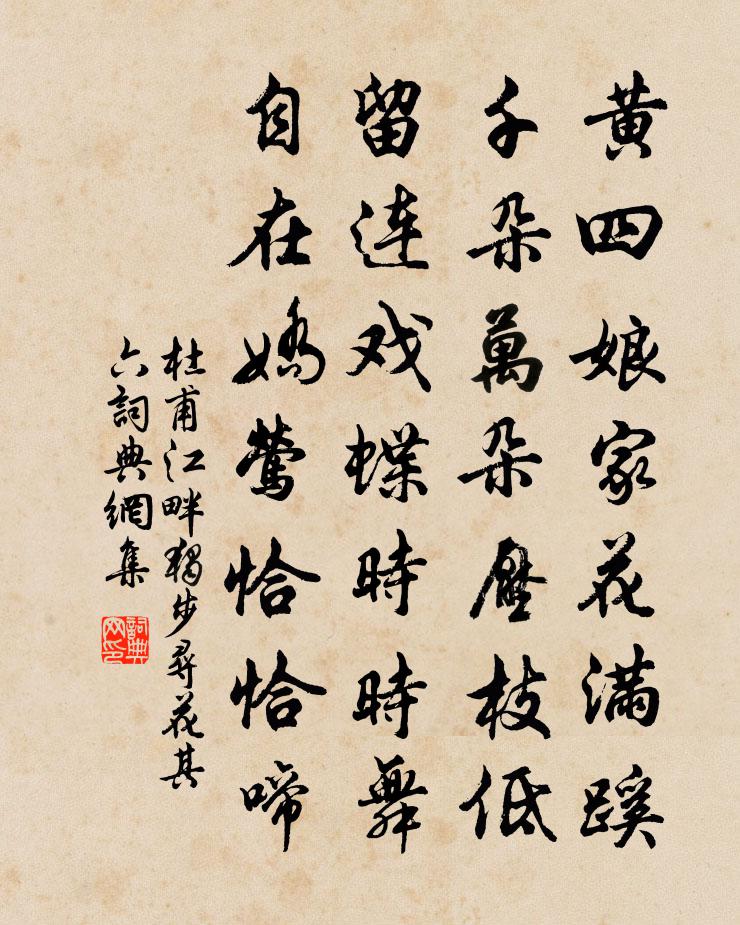 黃四娘家花滿蹊
千朵萬朵壓枝低
留連戏蝶時時舞
自在嬌鶯恰恰啼
杜甫江畔獨步尋花其
六詞典網集
詞典
网印